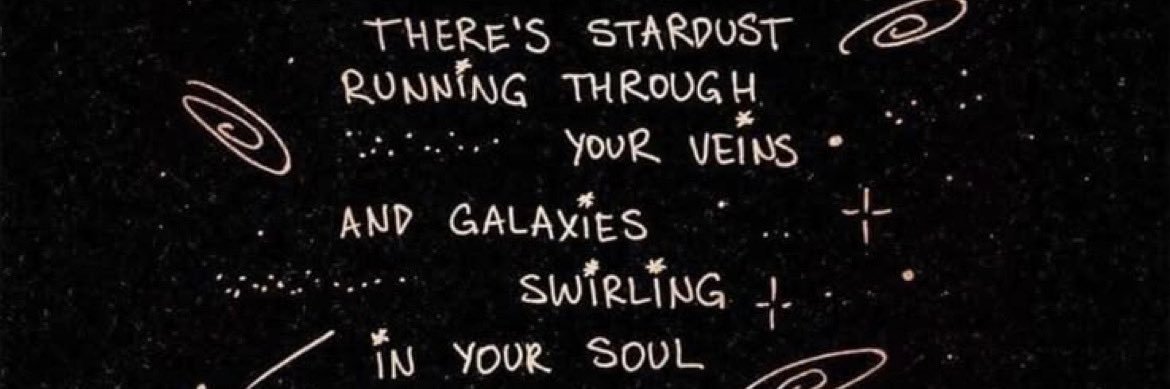 THERE'S STARDUST
RUNNING THROUGH
YOUR VEINS
AND GALAXIES
SWIRLING
IN YOUR SOUL